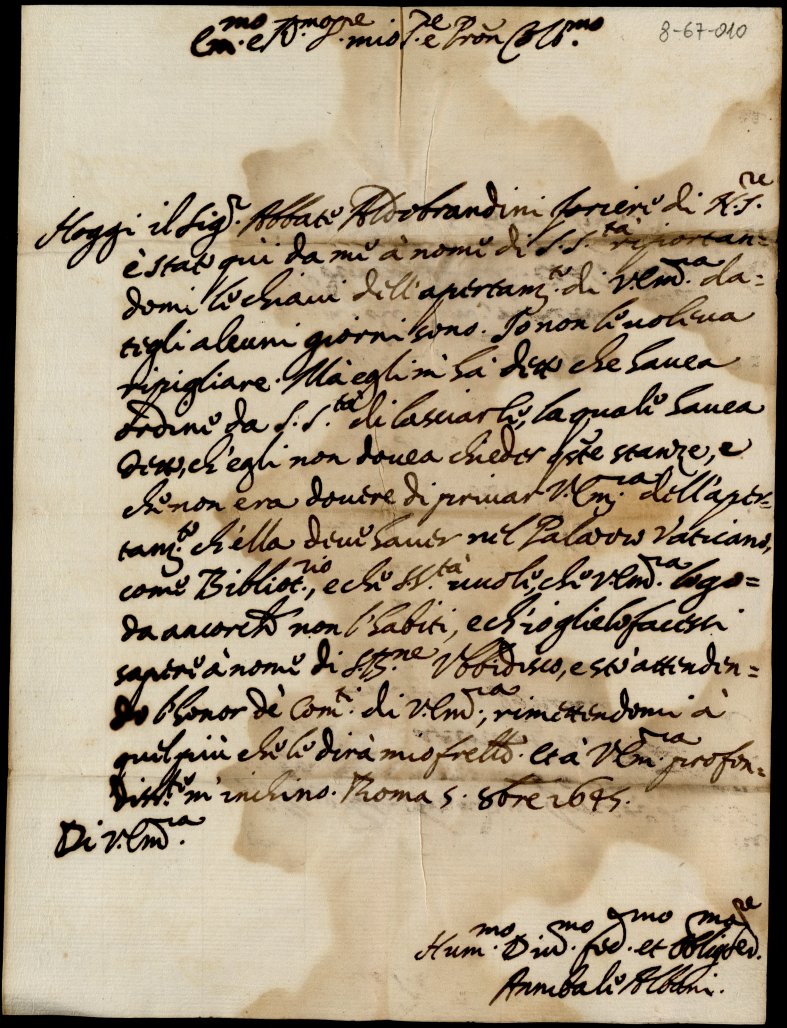 Em.mo e R.mo Sig.re mio S.re e Pron Col.mo
8-67-010
Hoggi il Sig.r Abbate Aldobrandini foriere di N.S.re
è stato quì da me à nome di S.S.tà riportan=
domi le chiaui dell'apertam.to di V.Em.a da=
tegli alcuni giorni sono. Io non le uoleua
ripigliare. Mà egli m'hà detto che hauea
ordine da S.S.tà di lasciarle, la quale hauea
detto, ch'egli non douea chieder q.ste stanze, e
che non era douere di priuar V.Em.a dell'aper=
tam.to ch'ella deue hauer nel Palazzo Vaticano,
come Bibliot.rio, e che S.S.tà uuole, che V.Em.a lo go=
da ancorche non l'habiti, e ch'io glielo facessi
sapere à nome di S.B.ne Vbbidisco, e stò attenden=
do l'honor de Com.ti di V.Em.a, rimettendomi à
quel più che le dirà mio fretto. Et à V.Em.a profon=
diss.te m'inchino. Roma 5. 8bre 1645.
Di V.Em.a
Hum.mo Diu.mo fed.mo et Oblig. Ser.re
Annibale Albani.